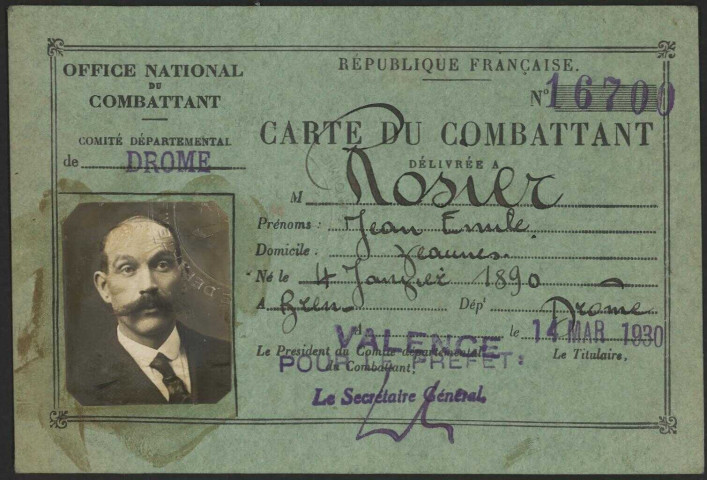 OFFICE NATIONAL
DU
COMBATTANT
COMITÉ DÉPARTEMENTAL
de DROME
RÉPUBLIQUE FRANÇAISE.
N° 16700
CARTE DU COMBATTANT
DÉLIVRÉE A
M Rosier
Prénoms : Jean Emile
Domicile . Jeaunes
Né le 4 Janvier 1890
A Bren Dépt Drôme
A VALENCE le 14 MAR 1930
Le Président du Comité départemental
du Combattant,
POUR LE PREFET:
Le Titulaire,
Le Secrétaire Général,